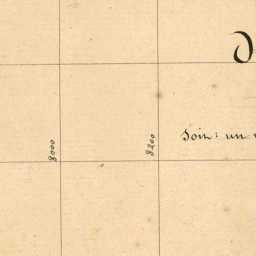 d
8000
8200
Soit: un